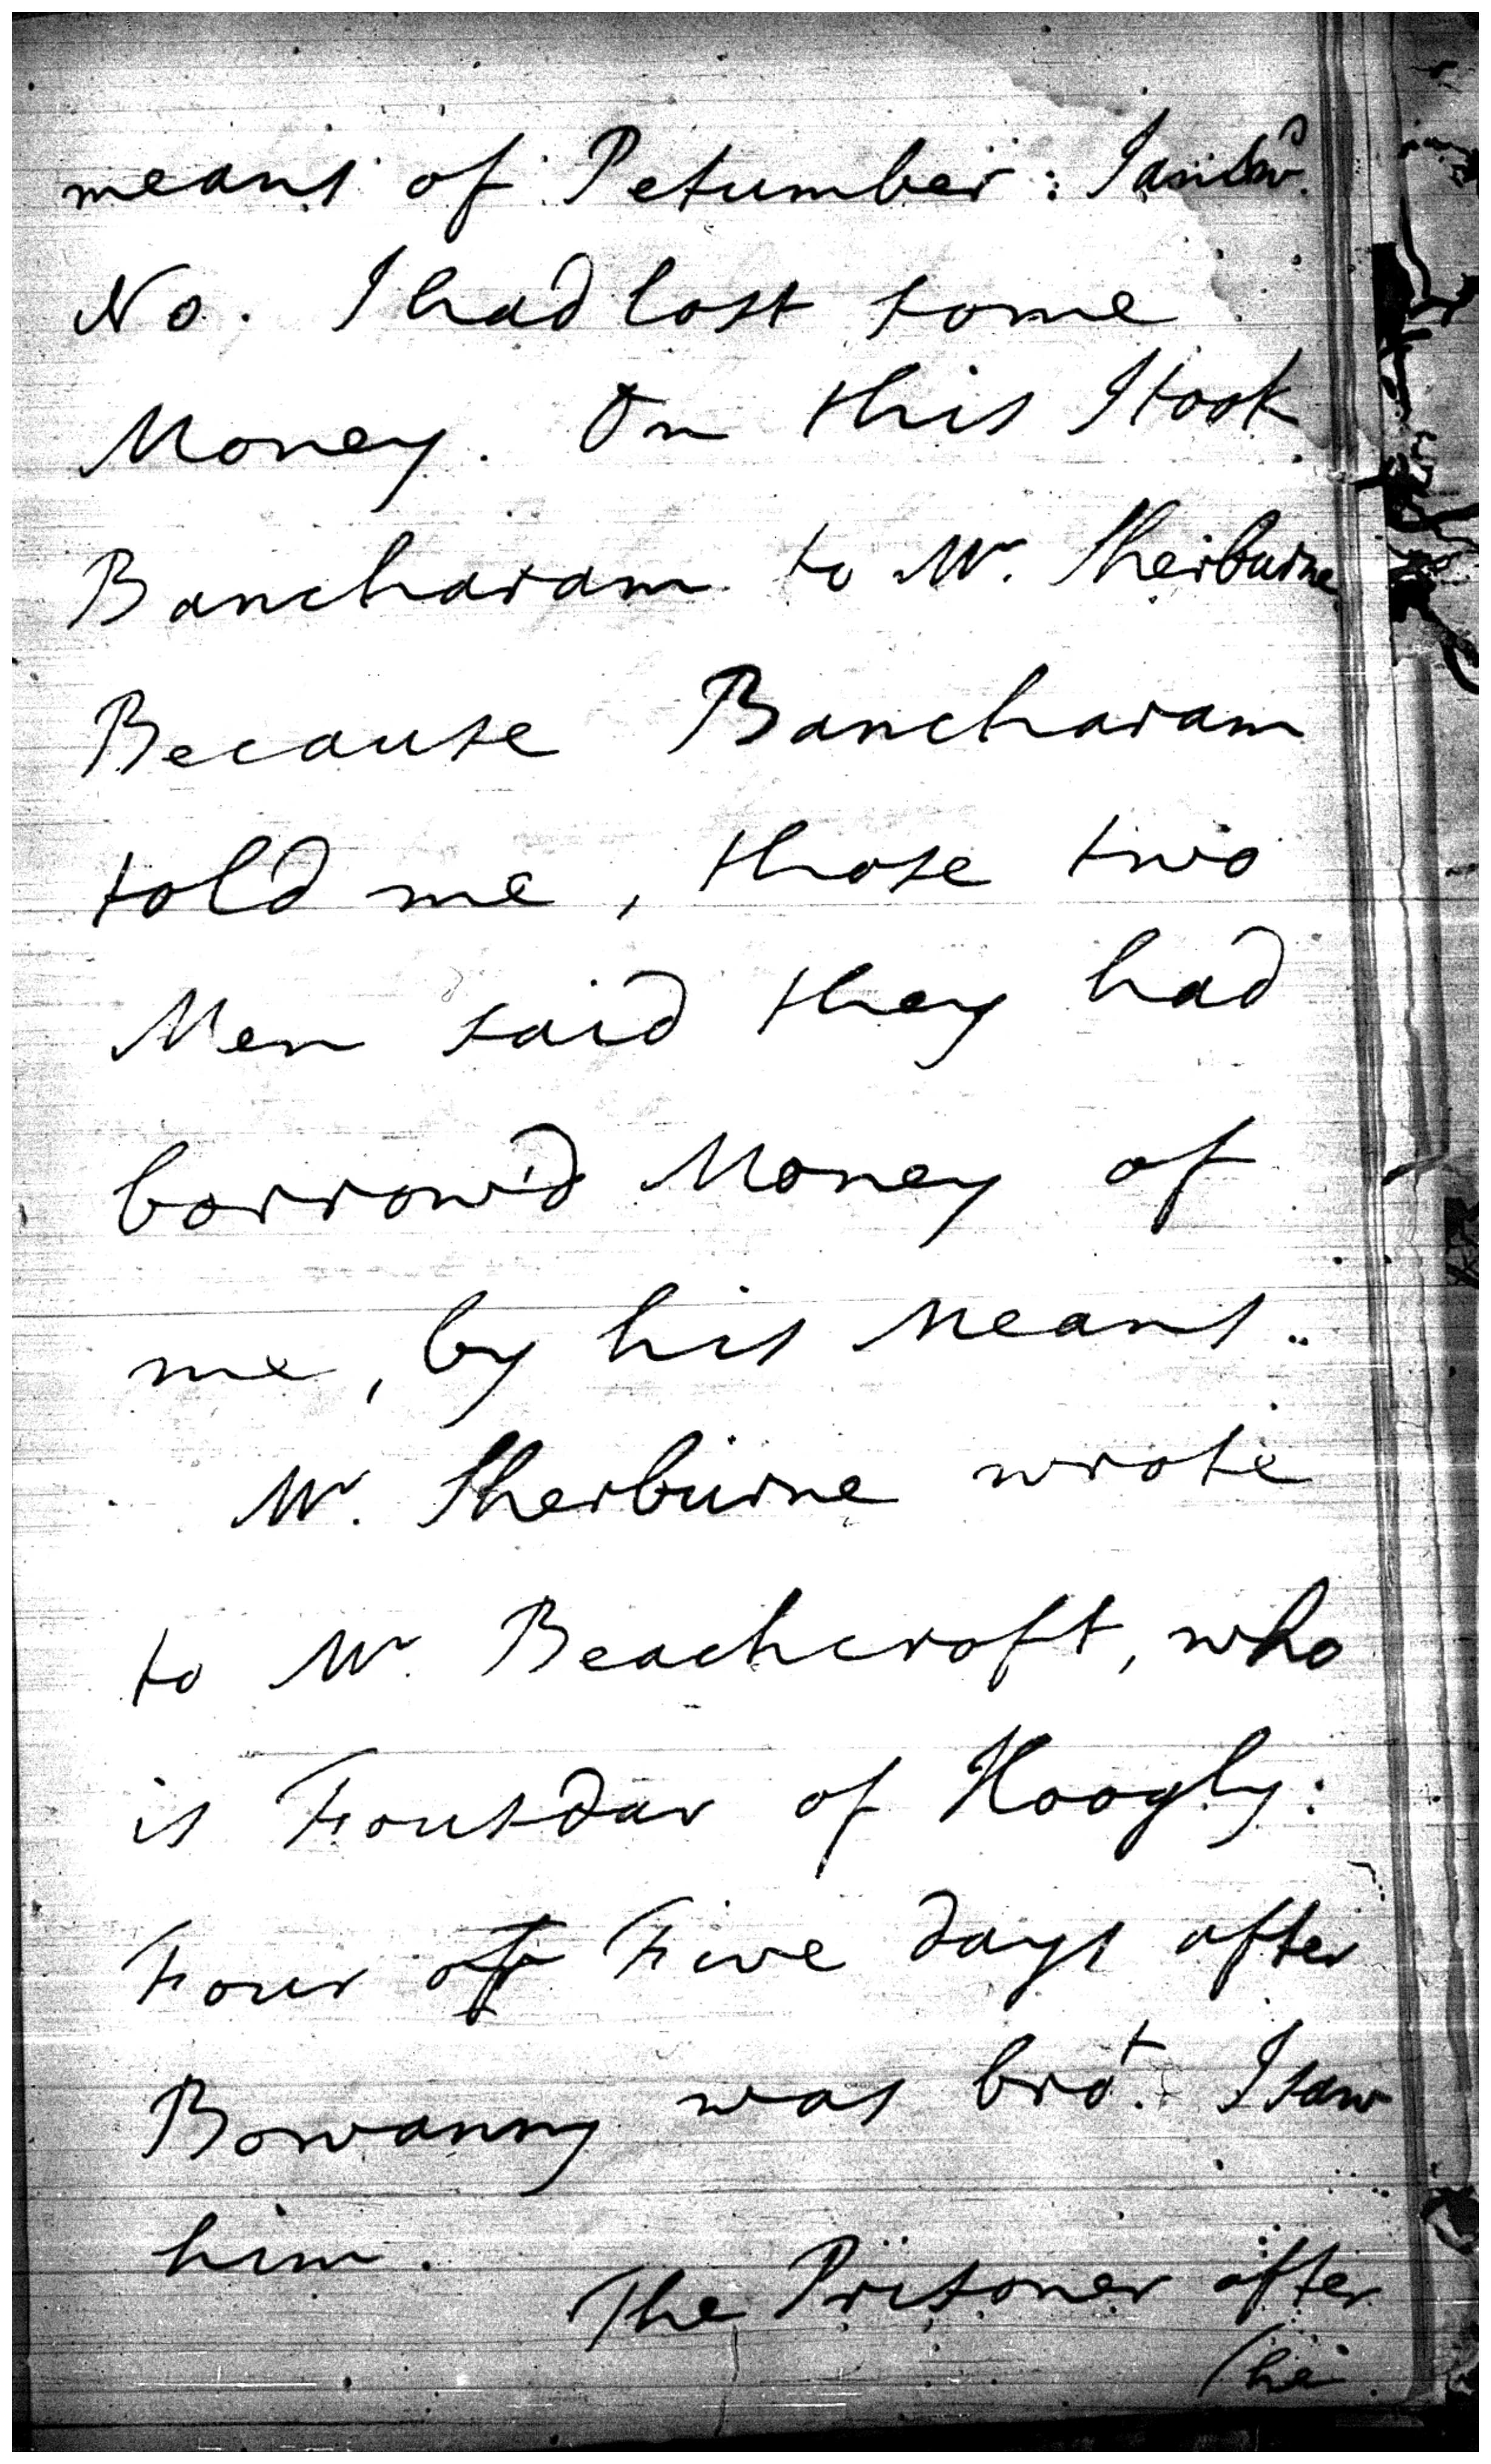 means of Petumber: I answ.d
No. I had lost some
Money. On this I took
Bancharam to Mr. Sherburne
Because Bancharam
told me, those two
Men said they had
borrow'd Money of
me, by his Means..
Mr. Sherburne wrote
to Mr. Beachcroft, who
is Fousdar of Hoogly:
Four or Five days after
Bowanny was bro.t I saw
him.
The Prisoner after
(he